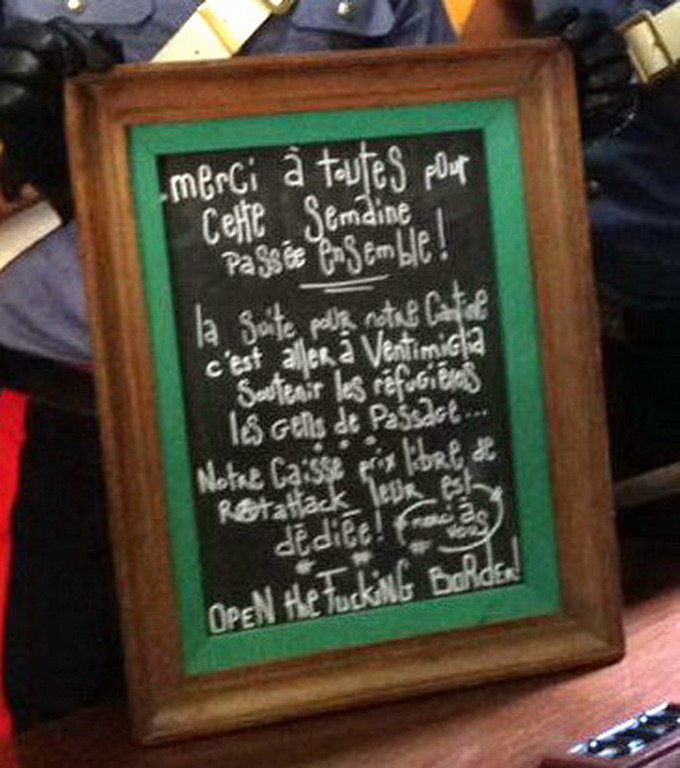 merci à toutes pour
cette semaine
passée ensemble!
la suite pour notre Cantine
c'est aller à Ventimiglia
Soutenir les réfugié
les gens de passage...
Notre Caisse prix libre de
Rotattack leur est
dédiée! merci à
vous
OPEN the FUCKING BORDER!